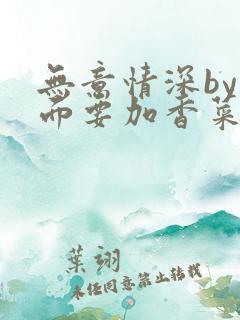 無意情深by
而要加香菜
葉翊
未经同意禁止转载